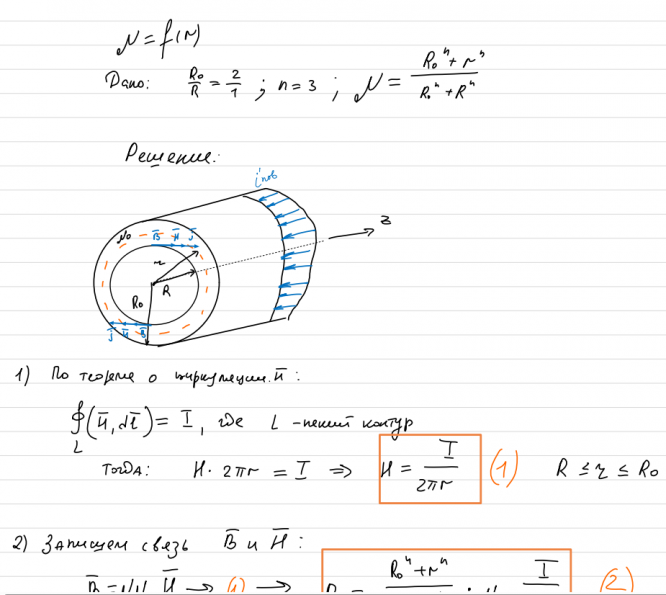 μ = f(r)
Дано: R₀/R = 2/1 ; n = 3 ; μ = (R₀ⁿ + rⁿ)/(R₀ⁿ + Rⁿ)
Решение:
i'пов
z
μ₀ B̄ H̄ J̄
r
R₀ R
J̄ H̄ B̄
1) По теореме о циркуляции H̄ :
∮_L (H̄, dl̄) = I, где L - некий контур
Тогда: H · 2πr = I ⇒ H = I/(2πr) (1) R ≤ r ≤ R₀
2) Запишем связь B̄ и H̄ :
B̄ = μμ₀ H̄ → (1) → B = (R₀ⁿ + rⁿ) I (2)